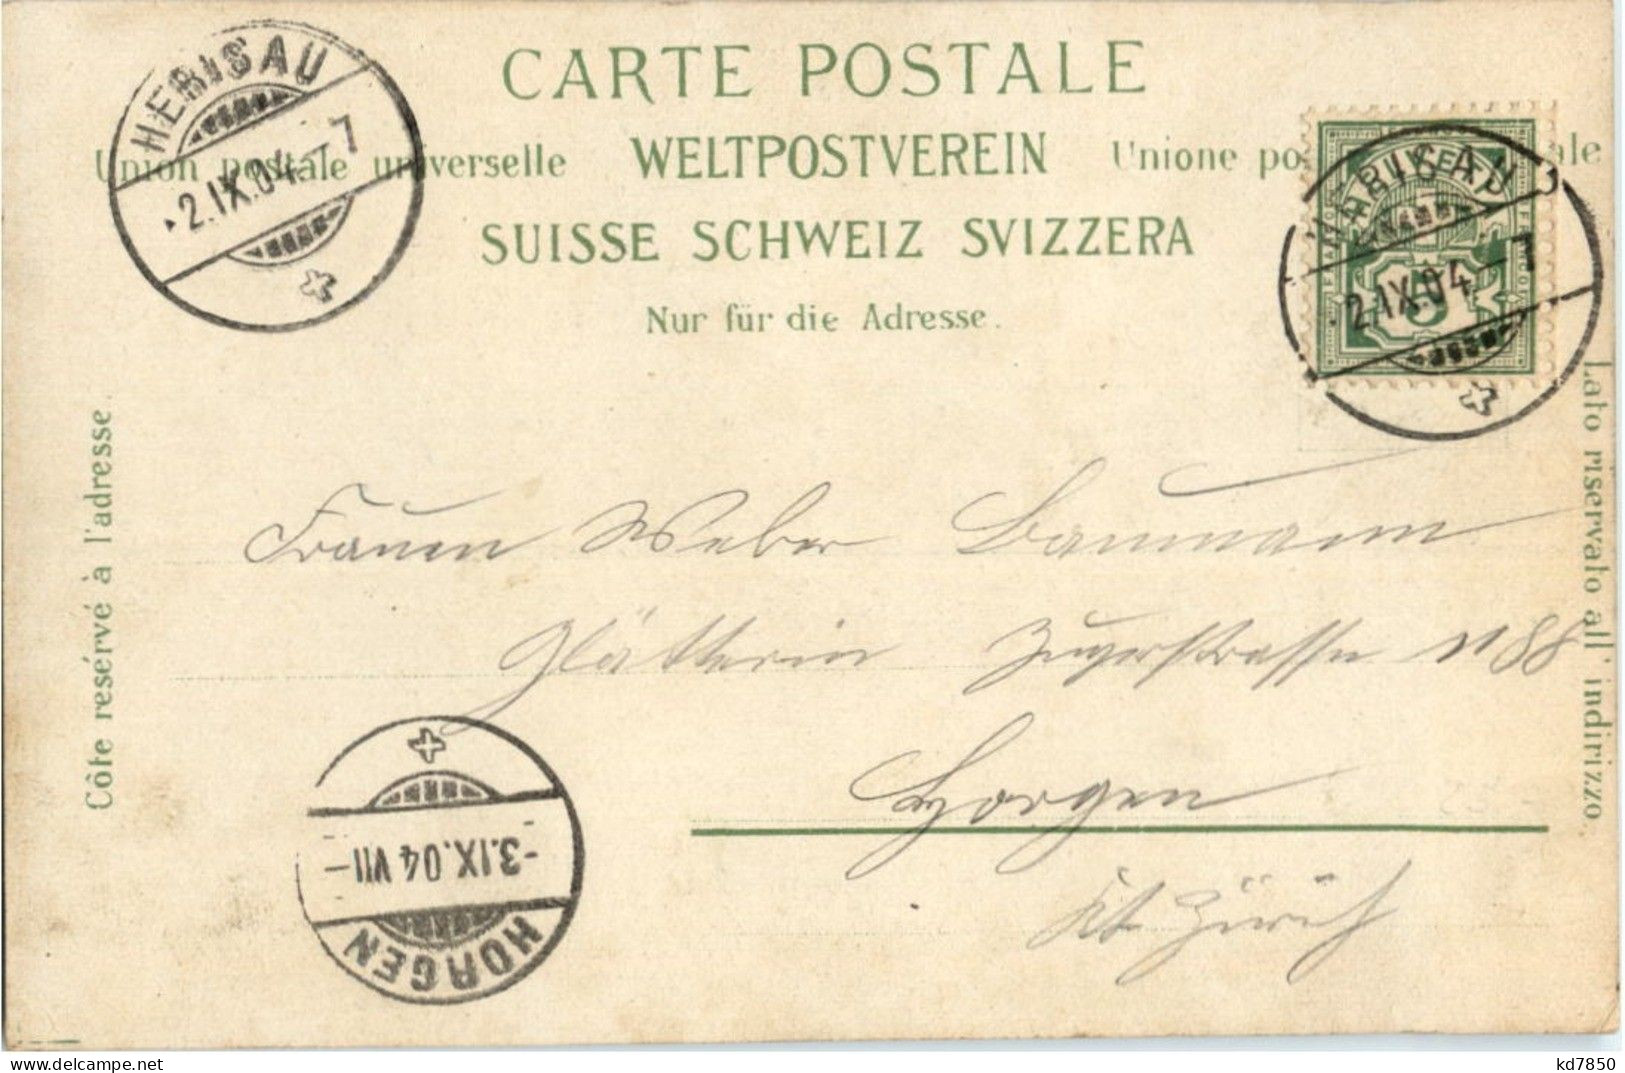 CARTE POSTALE
Union postale universelle WELTPOSTVEREIN Unione po ale
SUISSE SCHWEIZ SVIZZERA
Nur für die Adresse.
HERISAU
2.IX.04.-7
HERISAU
2.IX.04-7
HELVETIA
FRANCO
5
Côte resérvé à l'adresse.
Lato riservato all' indirizzo.
Frauen Weber Baumann
Glätterin Zugerstrasse N 88
Horgen
Kt. Zürich
-3.IX.04 VII-
HORGEN
delcampe.net
kd7850